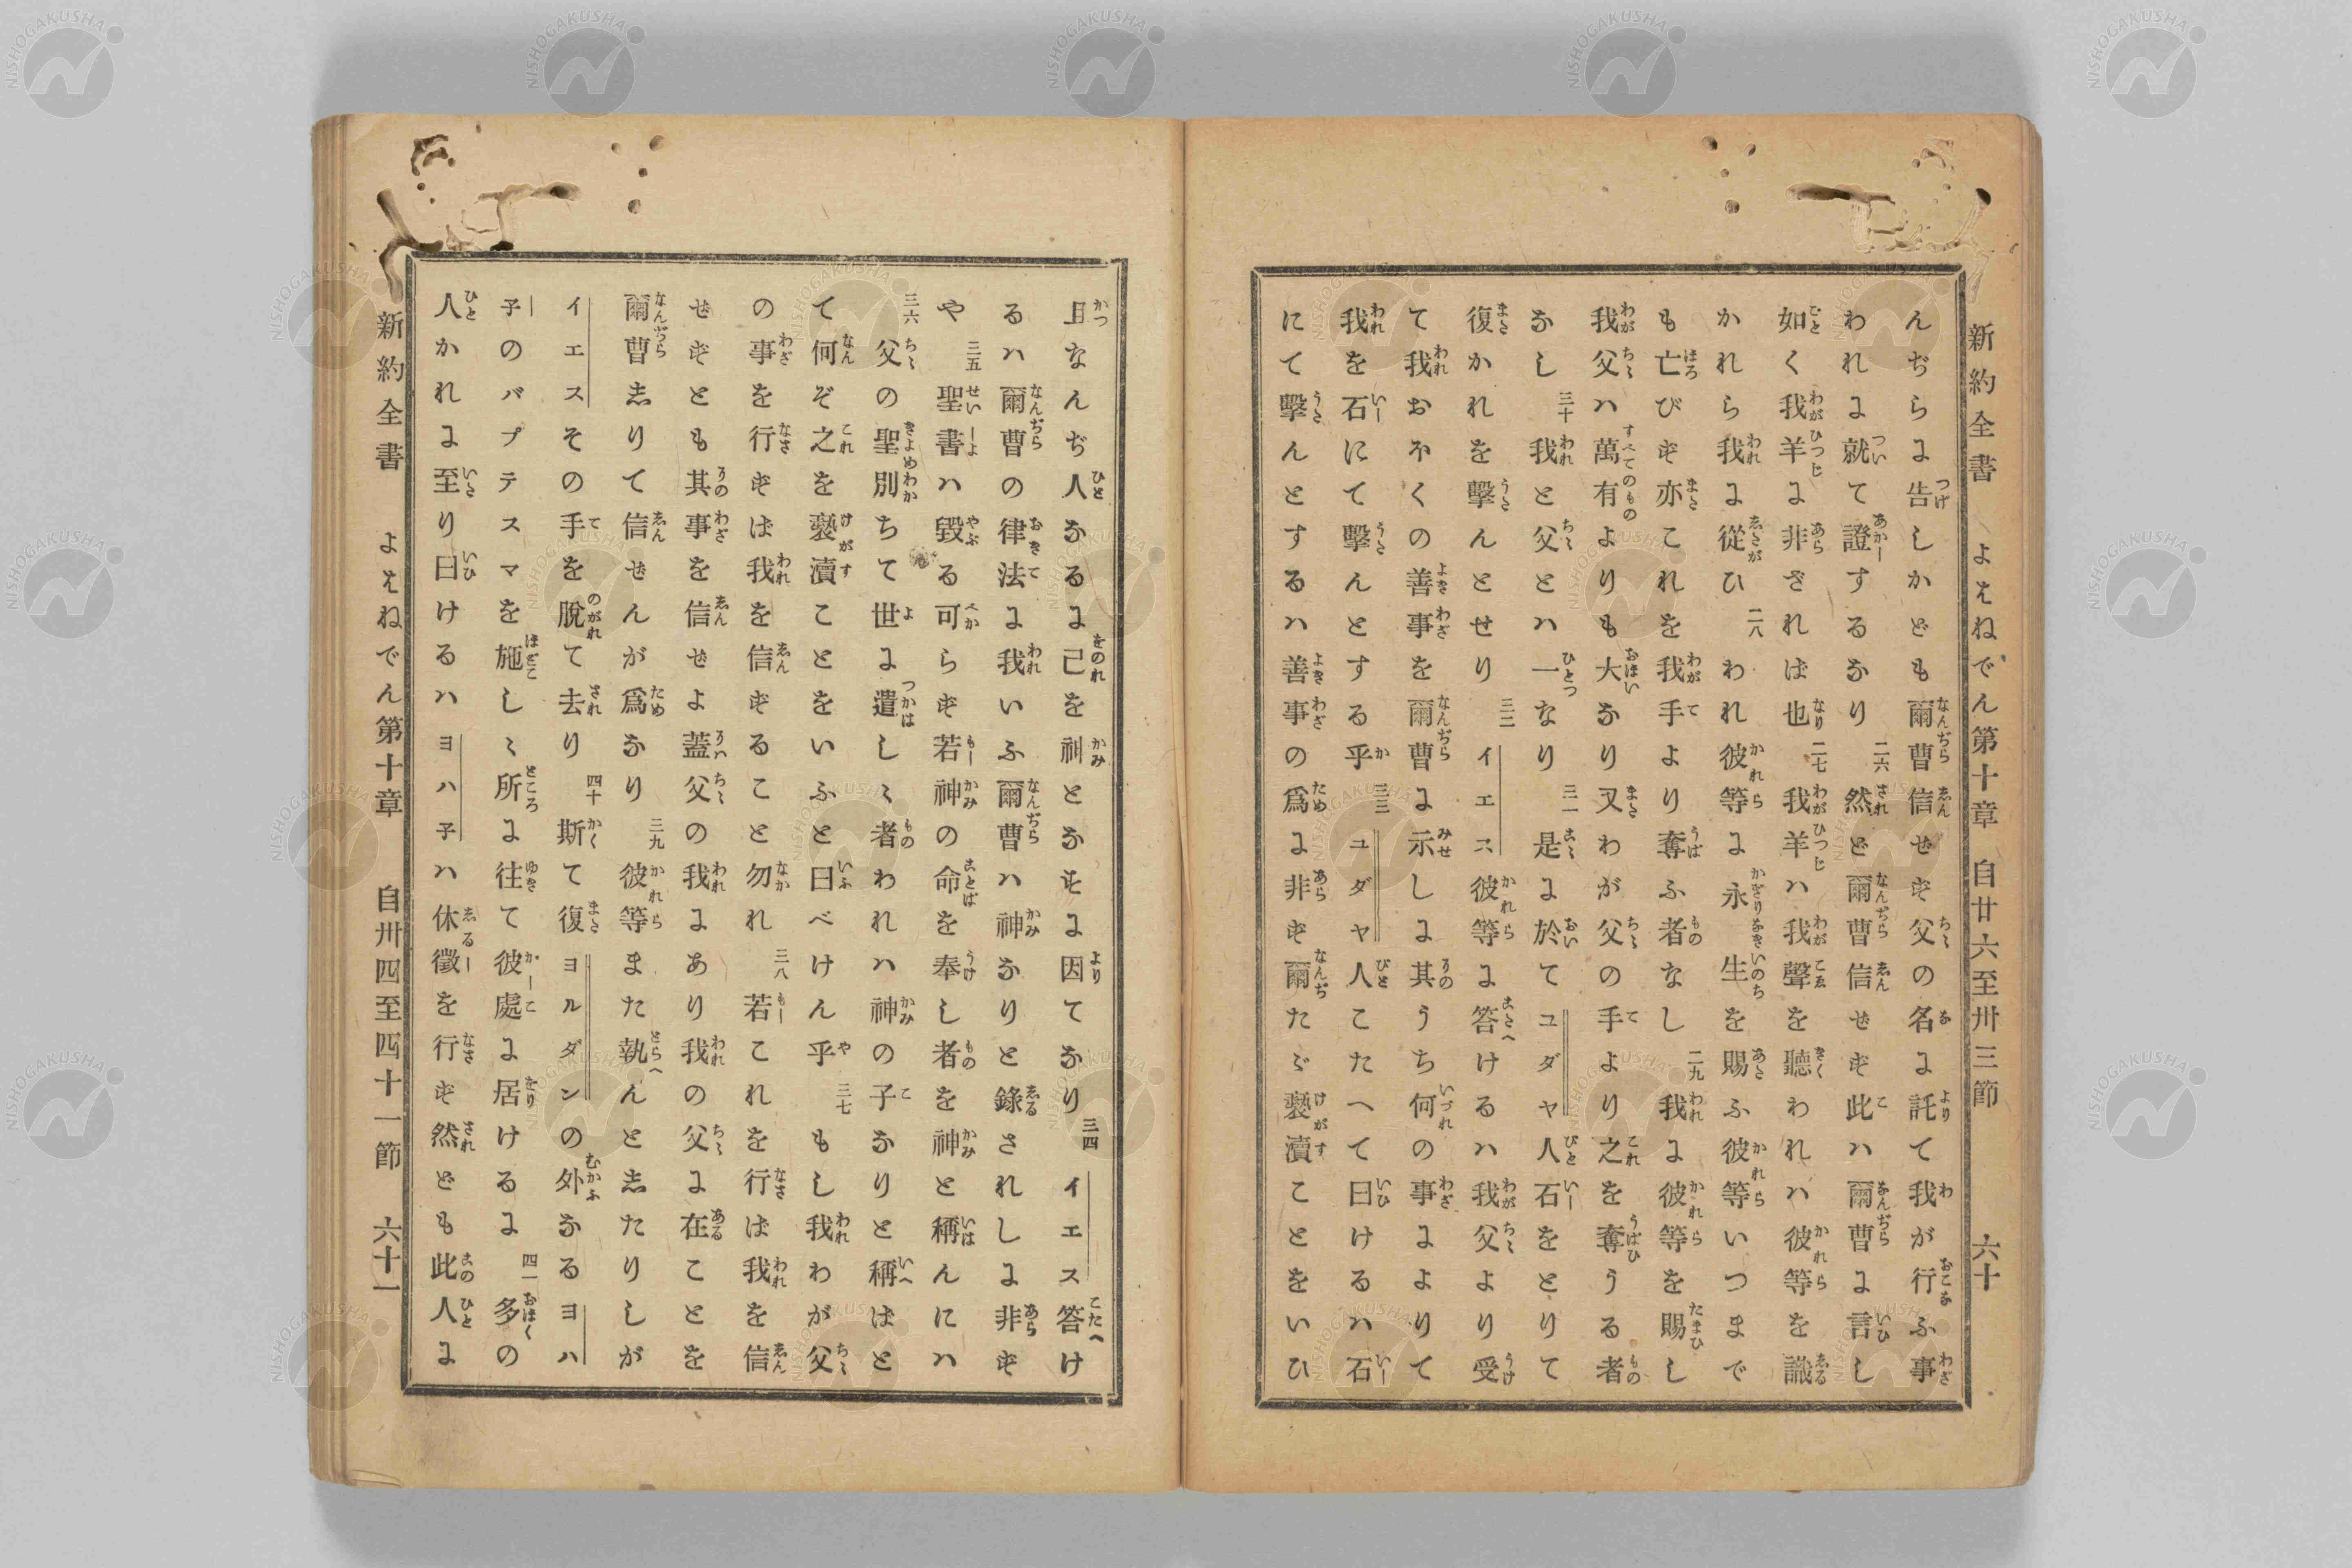 新約全書 よはねでん第十章 自廿六至卅三節 六十
んぢらに告しかども爾曹信せず父の名に託て我が行ふ事
われに就て證するなり 二六 然ど爾曹信せず此ハ爾曹に言し
如く我羊に非ざれば也 二七 我羊ハ我聲を聽われハ彼等を識
かれら我に從ひ 二八 われ彼等に永生を賜ふ彼等いつまで
も亡びず亦これを我手より奪ふ者なし 二九 我に彼等を賜し
我父ハ萬有よりも大なり又わが父の手より之を奪うる者
なし 三十 我と父とハ一なり 三一 是に於てユダヤ人石をとりて
復かれを擊んとせり 三二 イエス彼等に答けるハ我父より受
て我おホくの善事を爾曹に示しに其うち何の事によりて
我を石にて擊んとする乎 三三 ユダヤ人こたへて曰けるハ石
にて擊んとするハ善事の爲に非ず爾たゞ褻瀆ことをいひ
且なんぢ人なるに己を神となすに因てなり 三四 イエス答け
るハ爾曹の律法に我いふ爾曹ハ神なりと錄されしに非ず
や 三五 聖書ハ毀る可らず若神の命を奉し者を神と稱んにハ
三六 父の聖別ちて世に遣しゝ者われハ神の子なりと稱ばと
て何ぞ之を褻瀆ことをいふと曰べけん乎 三七 もし我わが父
の事を行ずば我を信ずること勿れ 三八 若これを行ば我を信
せずとも其事を信せよ蓋父の我にあり我の父に在ことを
爾曹志りて信せんが爲なり 三九 彼等また執んと志たりしが
イエスその手を脫て去り 四十 斯て復ヨルダンの外なるヨハ
子のバプテスマを施しゝ所に往て彼處に居けるに 四一 多の
人かれに至り曰けるハヨハ子ハ休徵を行ず然ども此人に
新約全書 よはねでん第十章 自卅四至四十一節 六十一